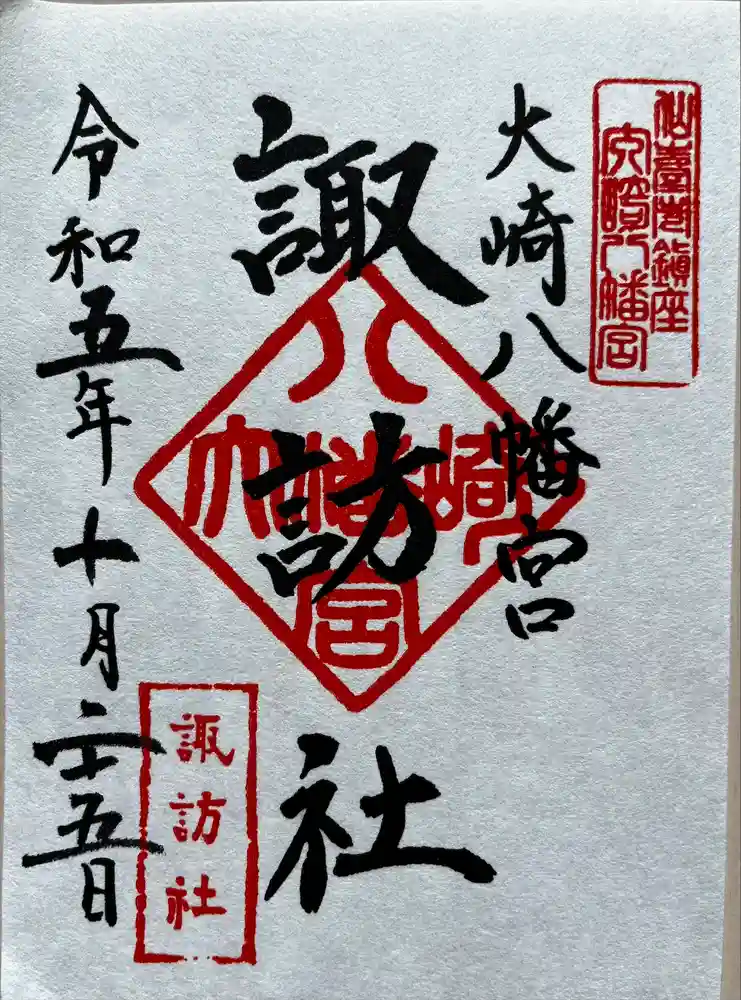 仙臺鎮座
八幡宮
大崎八幡宮
諏訪社
大崎八幡宮
令和五年十月二十五日
諏訪社